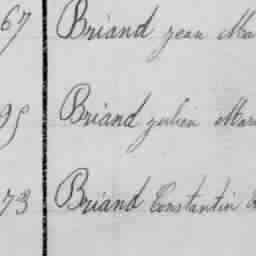 67 Briand jean Ma
95 Briand julien Mari
73 Briand Constantin